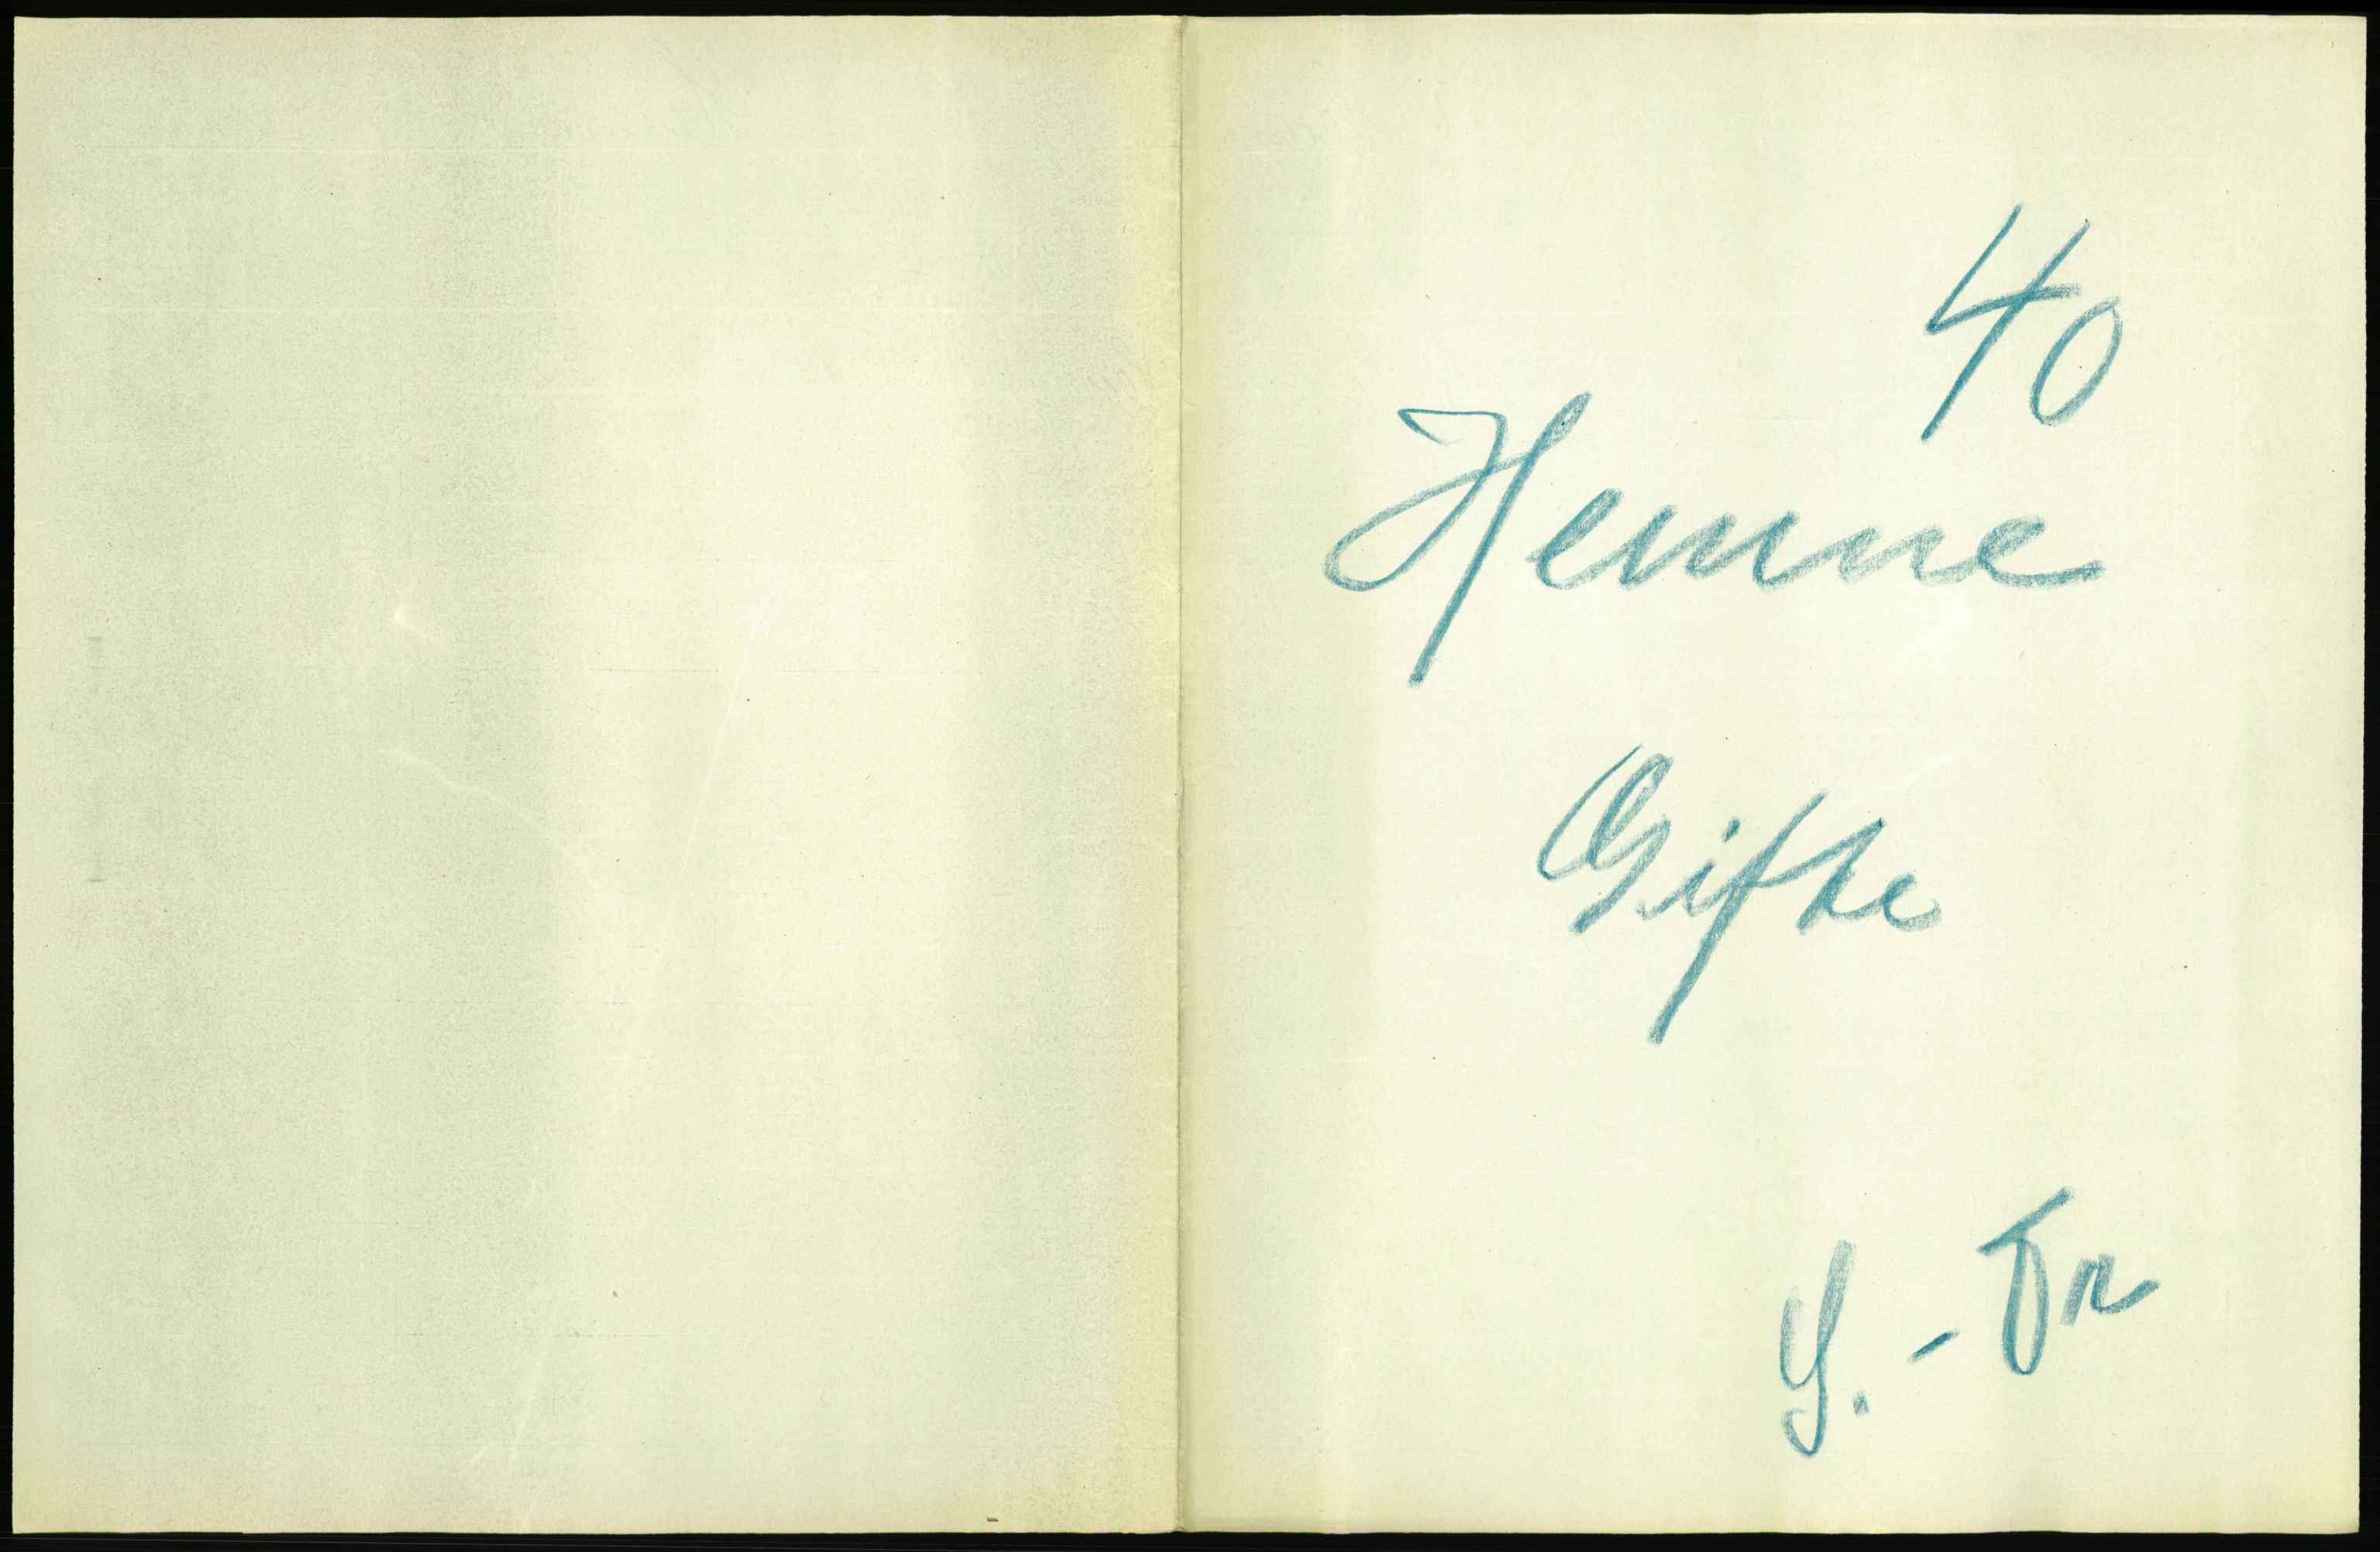 40
Hemne
Gifte
S. - Tr